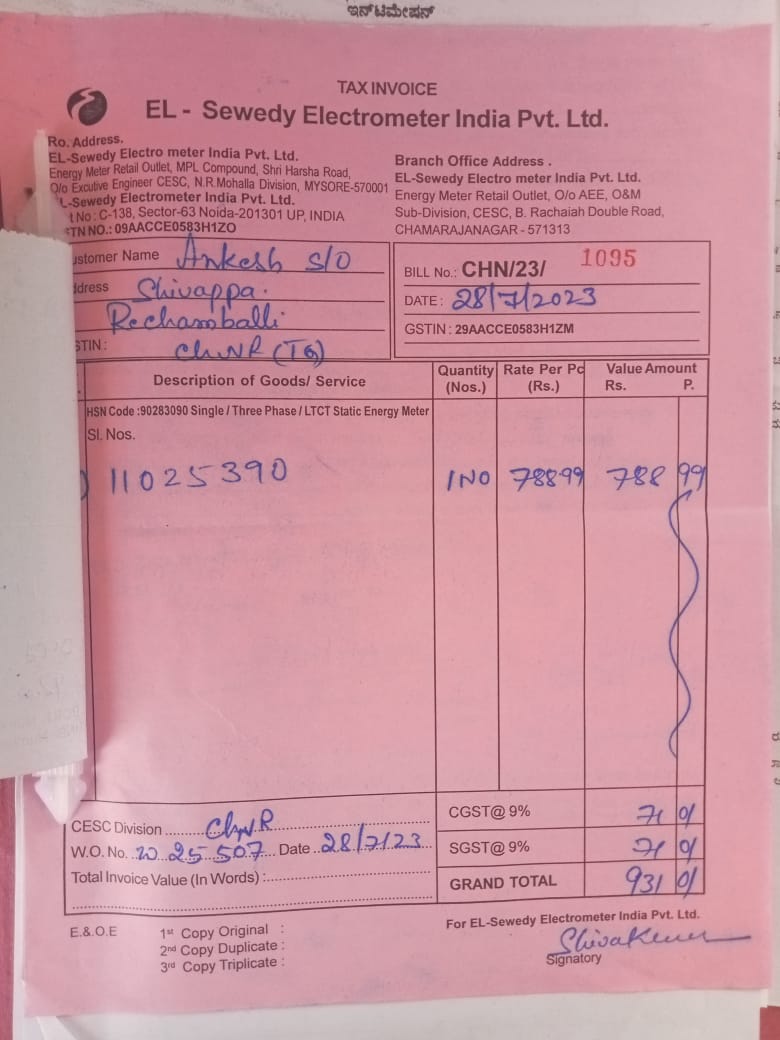 ಇನ್‌ಟಿಮೇಷನ್
TAX INVOICE
EL - Sewedy Electrometer India Pvt. Ltd.
Ro. Address.
EL-Sewedy Electro meter India Pvt. Ltd.
Energy Meter Retail Outlet, MPL Compound, Shri Harsha Road,
O/o Excutive Engineer CESC, N.R.Mohalla Division, MYSORE-570001
L-Sewedy Electrometer India Pvt. Ltd.
t No : C-138, Sector-63 Noida-201301 UP, INDIA
STN NO.: 09AACCE0583H1ZO
Branch Office Address .
EL-Sewedy Electro meter India Pvt. Ltd.
Energy Meter Retail Outlet, O/o AEE, O&M
Sub-Division, CESC, B. Rachaiah Double Road,
CHAMARAJANAGAR - 571313
ustomer Name Ankesh S/O
ddress Shivappa.
Rechamballi
STIN : ChNR (TQ)
BILL No.: CHN/23/ 1095
DATE : 28/7/2023
GSTIN : 29AACCE0583H1ZM
Description of Goods/ Service Quantity (Nos.) Rate Per Pc (Rs.) Value Amount Rs. P.
HSN Code :90283090 Single / Three Phase / LTCT Static Energy Meter
Sl. Nos.
) 11025390 1NO 788.99 788 99
CESC Division ChNR
W.O. No. 20 25 507 Date 28/7/23
Total Invoice Value (In Words) :
CGST@ 9% 71 01
SGST@ 9% 71 01
GRAND TOTAL 931 01
E.&.O.E 1st Copy Original :
2nd Copy Duplicate :
3rd Copy Triplicate :
For EL-Sewedy Electrometer India Pvt. Ltd.
Shivakumar
Signatory